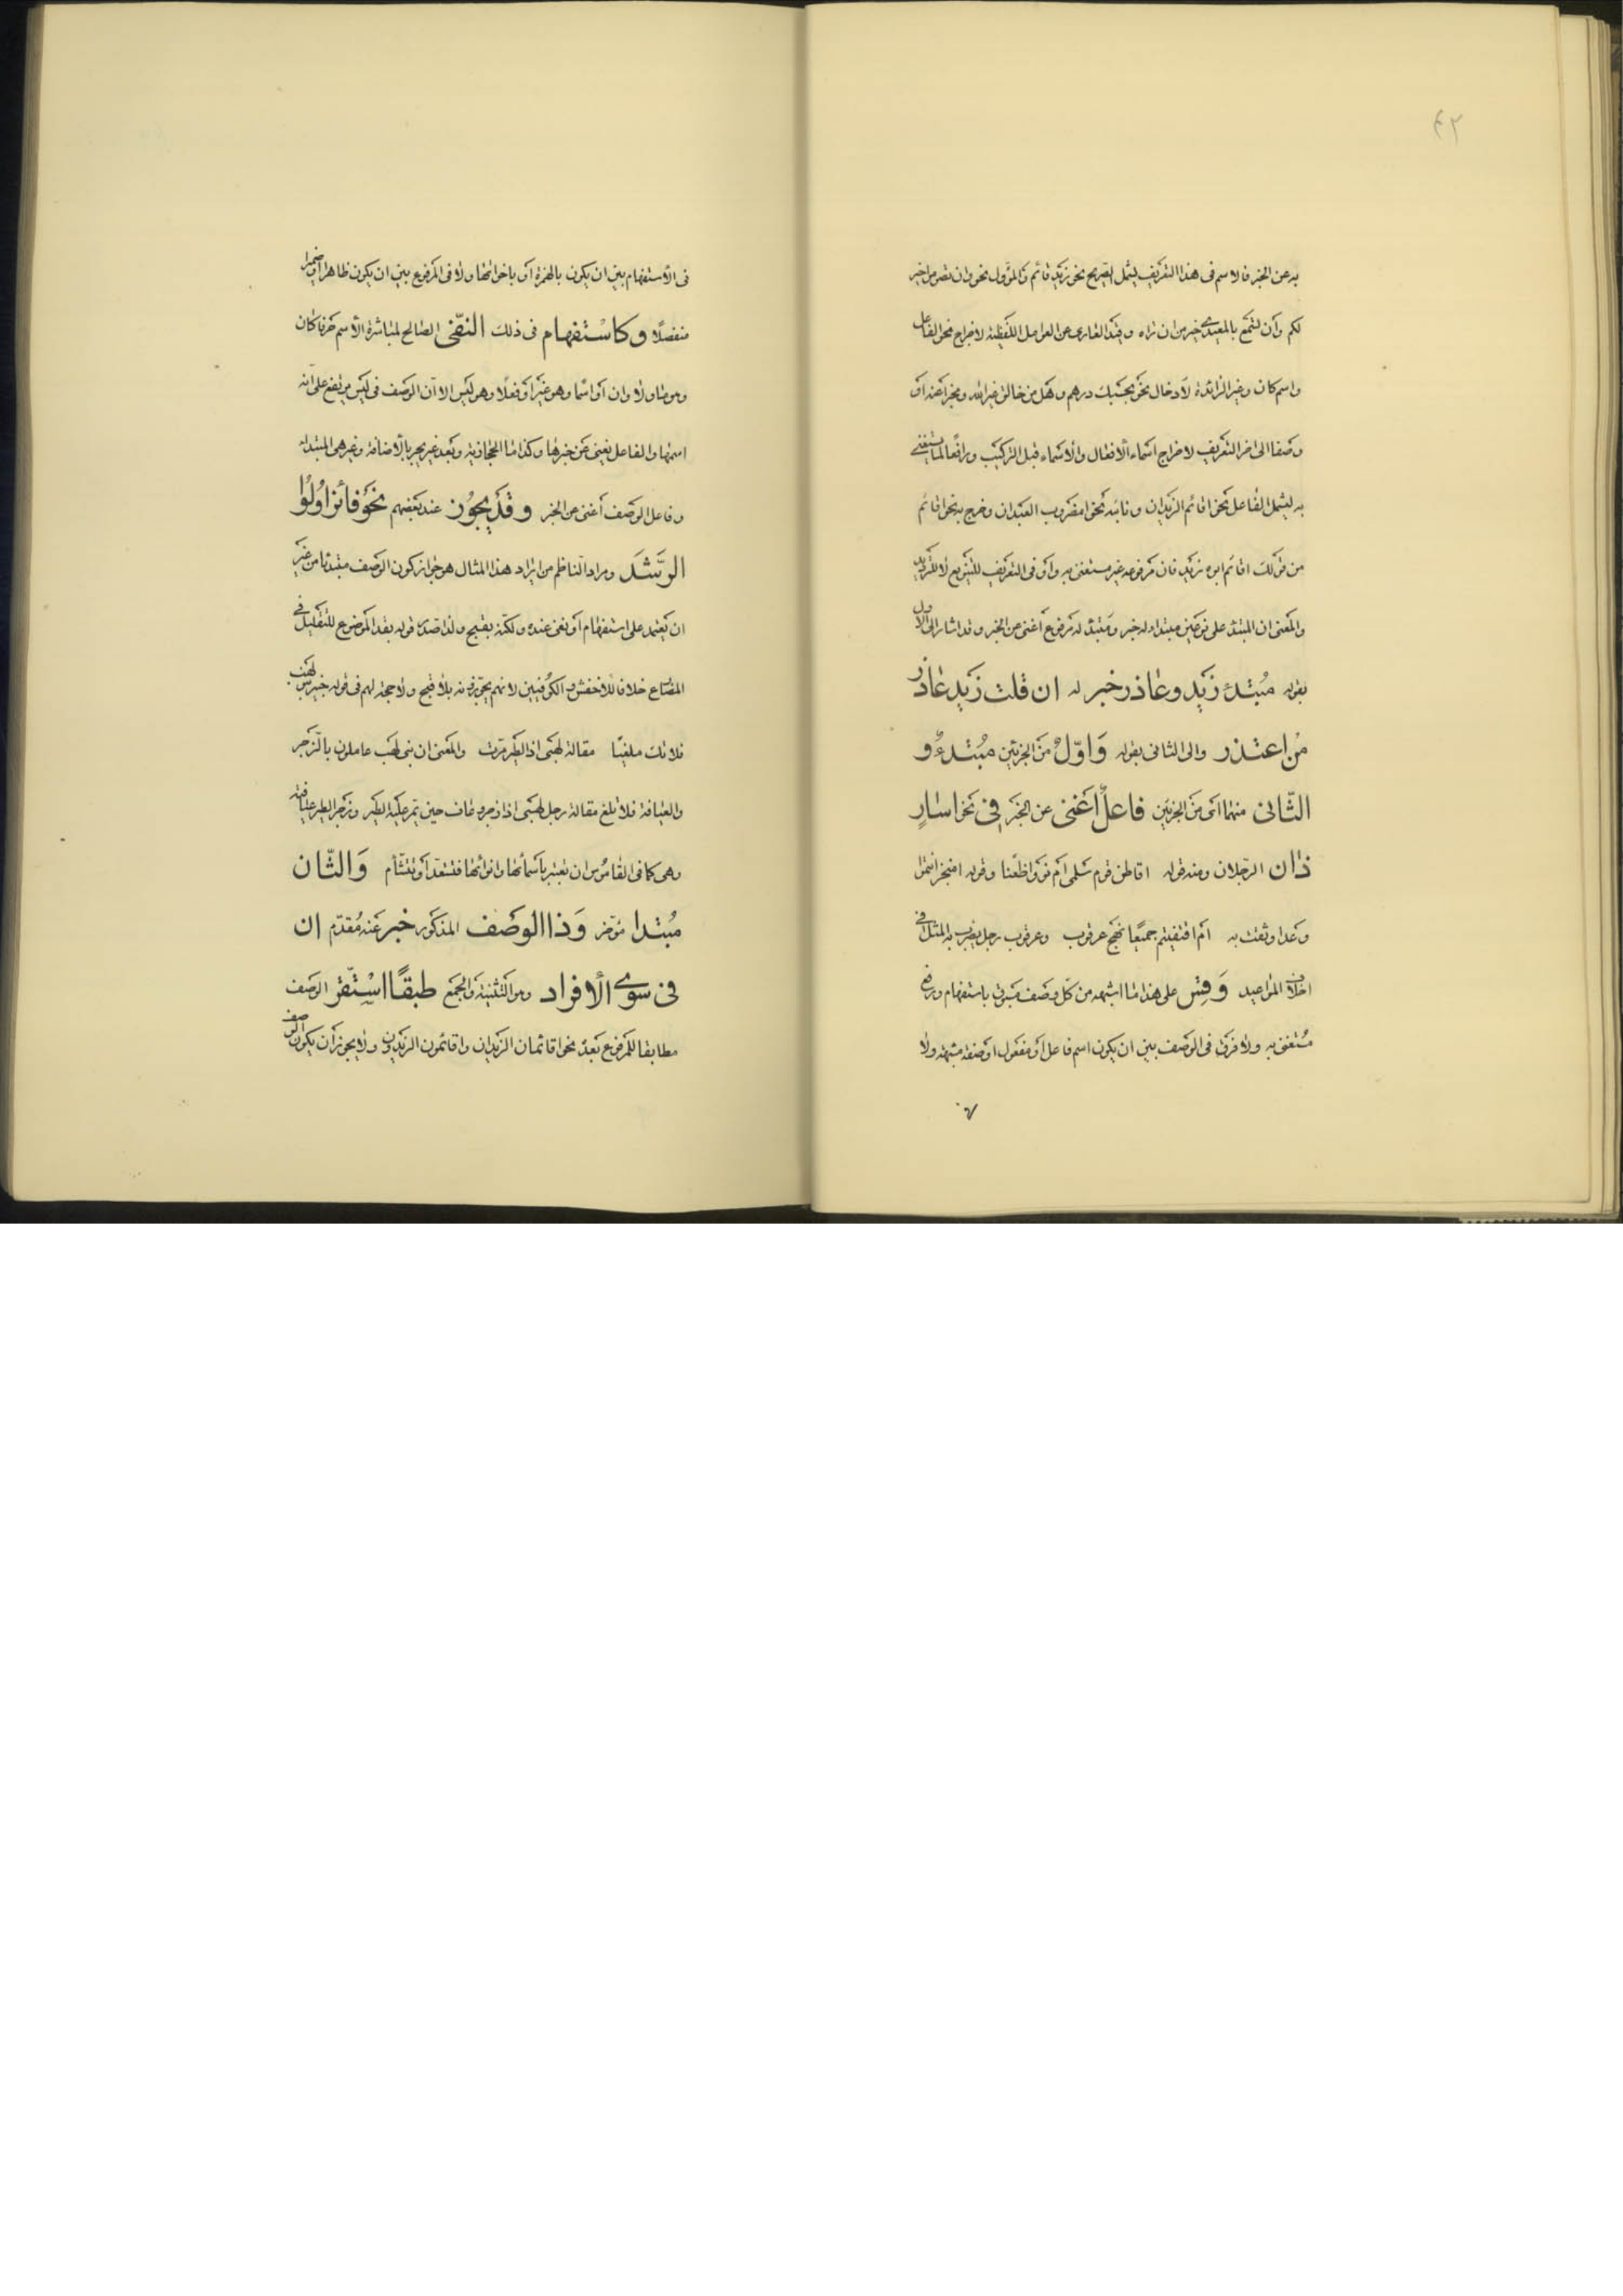 ٤٢
به عن الخبر فالاسم فى هذا التعريف يشمل الصريح نحو زيد قائم والمؤول نحو وان تصوموا خير
لكم وان تسمع بالمعيدى خير من ان تراه وقيد العارى عن العوامل اللفظية لاخراج نحو الفاعل
واسم كان وغير الزائدة لادخال نحو بحسبك درهم وهل من خالق غير الله ومخبرا عنه او
وصفا الى اخر التعريف لاخراج اسماء الافعال والاسماء قبل التركيب ورافعا لما يستغنى
به ليشمل الفاعل نحو اقائم الزيدان ونائبه نحو امضروب العبدان وخرج به نحو اقائم
من قولك اقائم ابوه زيد فان مرفوعه غير مستغنى به واو فى التعريف للتنويع لا للترديد
والمعنى ان المبتدء على نوعين مبتداء له خبر ومبتدء له مرفوع أغنى عن الخبر وقد اشار الى الاول
بقوله مُبتدءٌ زَيد وعاذر خبر له ان قلت زَيد عاذر
مَن اعتذر والى الثانى بقوله وَاوّلٌ من الجزئين مُبتدءٌ و
الثّانى منهما اى من الجزئين فاعلٌ اغنى عن الخبر فى نحو اسارٍ
ذان الرجلان ومنه قوله اقاطن قوم سلمى ام نووا ظعنا وقوله امنجز انتموا
وعدا وثقت به ام اقتفيتم جميعا نهج عرقوب وعرقوب رجل يضرب به المثل فى
اخلاف المواعيد وَقِس على هذا ما اشبهه من كل وصف سبق باستفهام ورفع
مُستغنى به ولا فرق فى الوصف بين ان يكون اسم فاعل او مفعول او صفة مشبهة ولا
فى الأستفهام بين ان يكون بالهمزة او باخواتها ولا فى المرفوع بين ان يكون ظاهرا او ضميرا
منفصلا وكاسْتفهام فى ذلك النفى الصالح لمباشرة الأسم حرفا كان
وهو ما ولا وان او اسما وهو غير او فعلا وهو ليس الا ان الوصف فى ليس يرتفع على انه
اسمها والفاعل يغنى عن خبرها وكذا ما الحجازية وبعد غير يجر بالأضافة وغير هى المبتداء
وفاعل الوصف أغنى عن الخبر وقَد يجُوز عند بعضهم نحو فائز اولُوا
الرّشَد ومراد الناظم من ايراد هذا المثال هو جواز كون الوصف مبتدئا من غير
ان يعتمد على استفهام او نفى عنده ولكنه بقبح ولذا صدره قوله بقد الموضوع للتقليل فى
المضارع خلافا للاخفش والكوفيين لانهم يجوزونه بلا قبح ولا حجة لهم فى قوله خبير بنو لهب
فلا تك ملغيا مقالة لهبى اذا الطير مرت والمعنى ان بنى لهب عاملون بالزجر
والعيافة فلا تلغ مقالة رجل لهبى اذا زجر وعاف حين تمر عليه الطير وزجر الطير عيافته
وهى كما فى القاموس ان يعتبر باسمائها وانوائها فتتسعد او تتشأم وَالثّان
مُبتدا مؤخر وَذا الوصف المذكور خبر عنه مُقدّم ان
فى سوى الأفراد وهو التثنية والجمع طبقًا اسْتقر الوصف
مطابقا للمرفوع بعده نحو اقائمان الزيدان واقائمون الزيدون ولا يجوز أن يكون الوصف